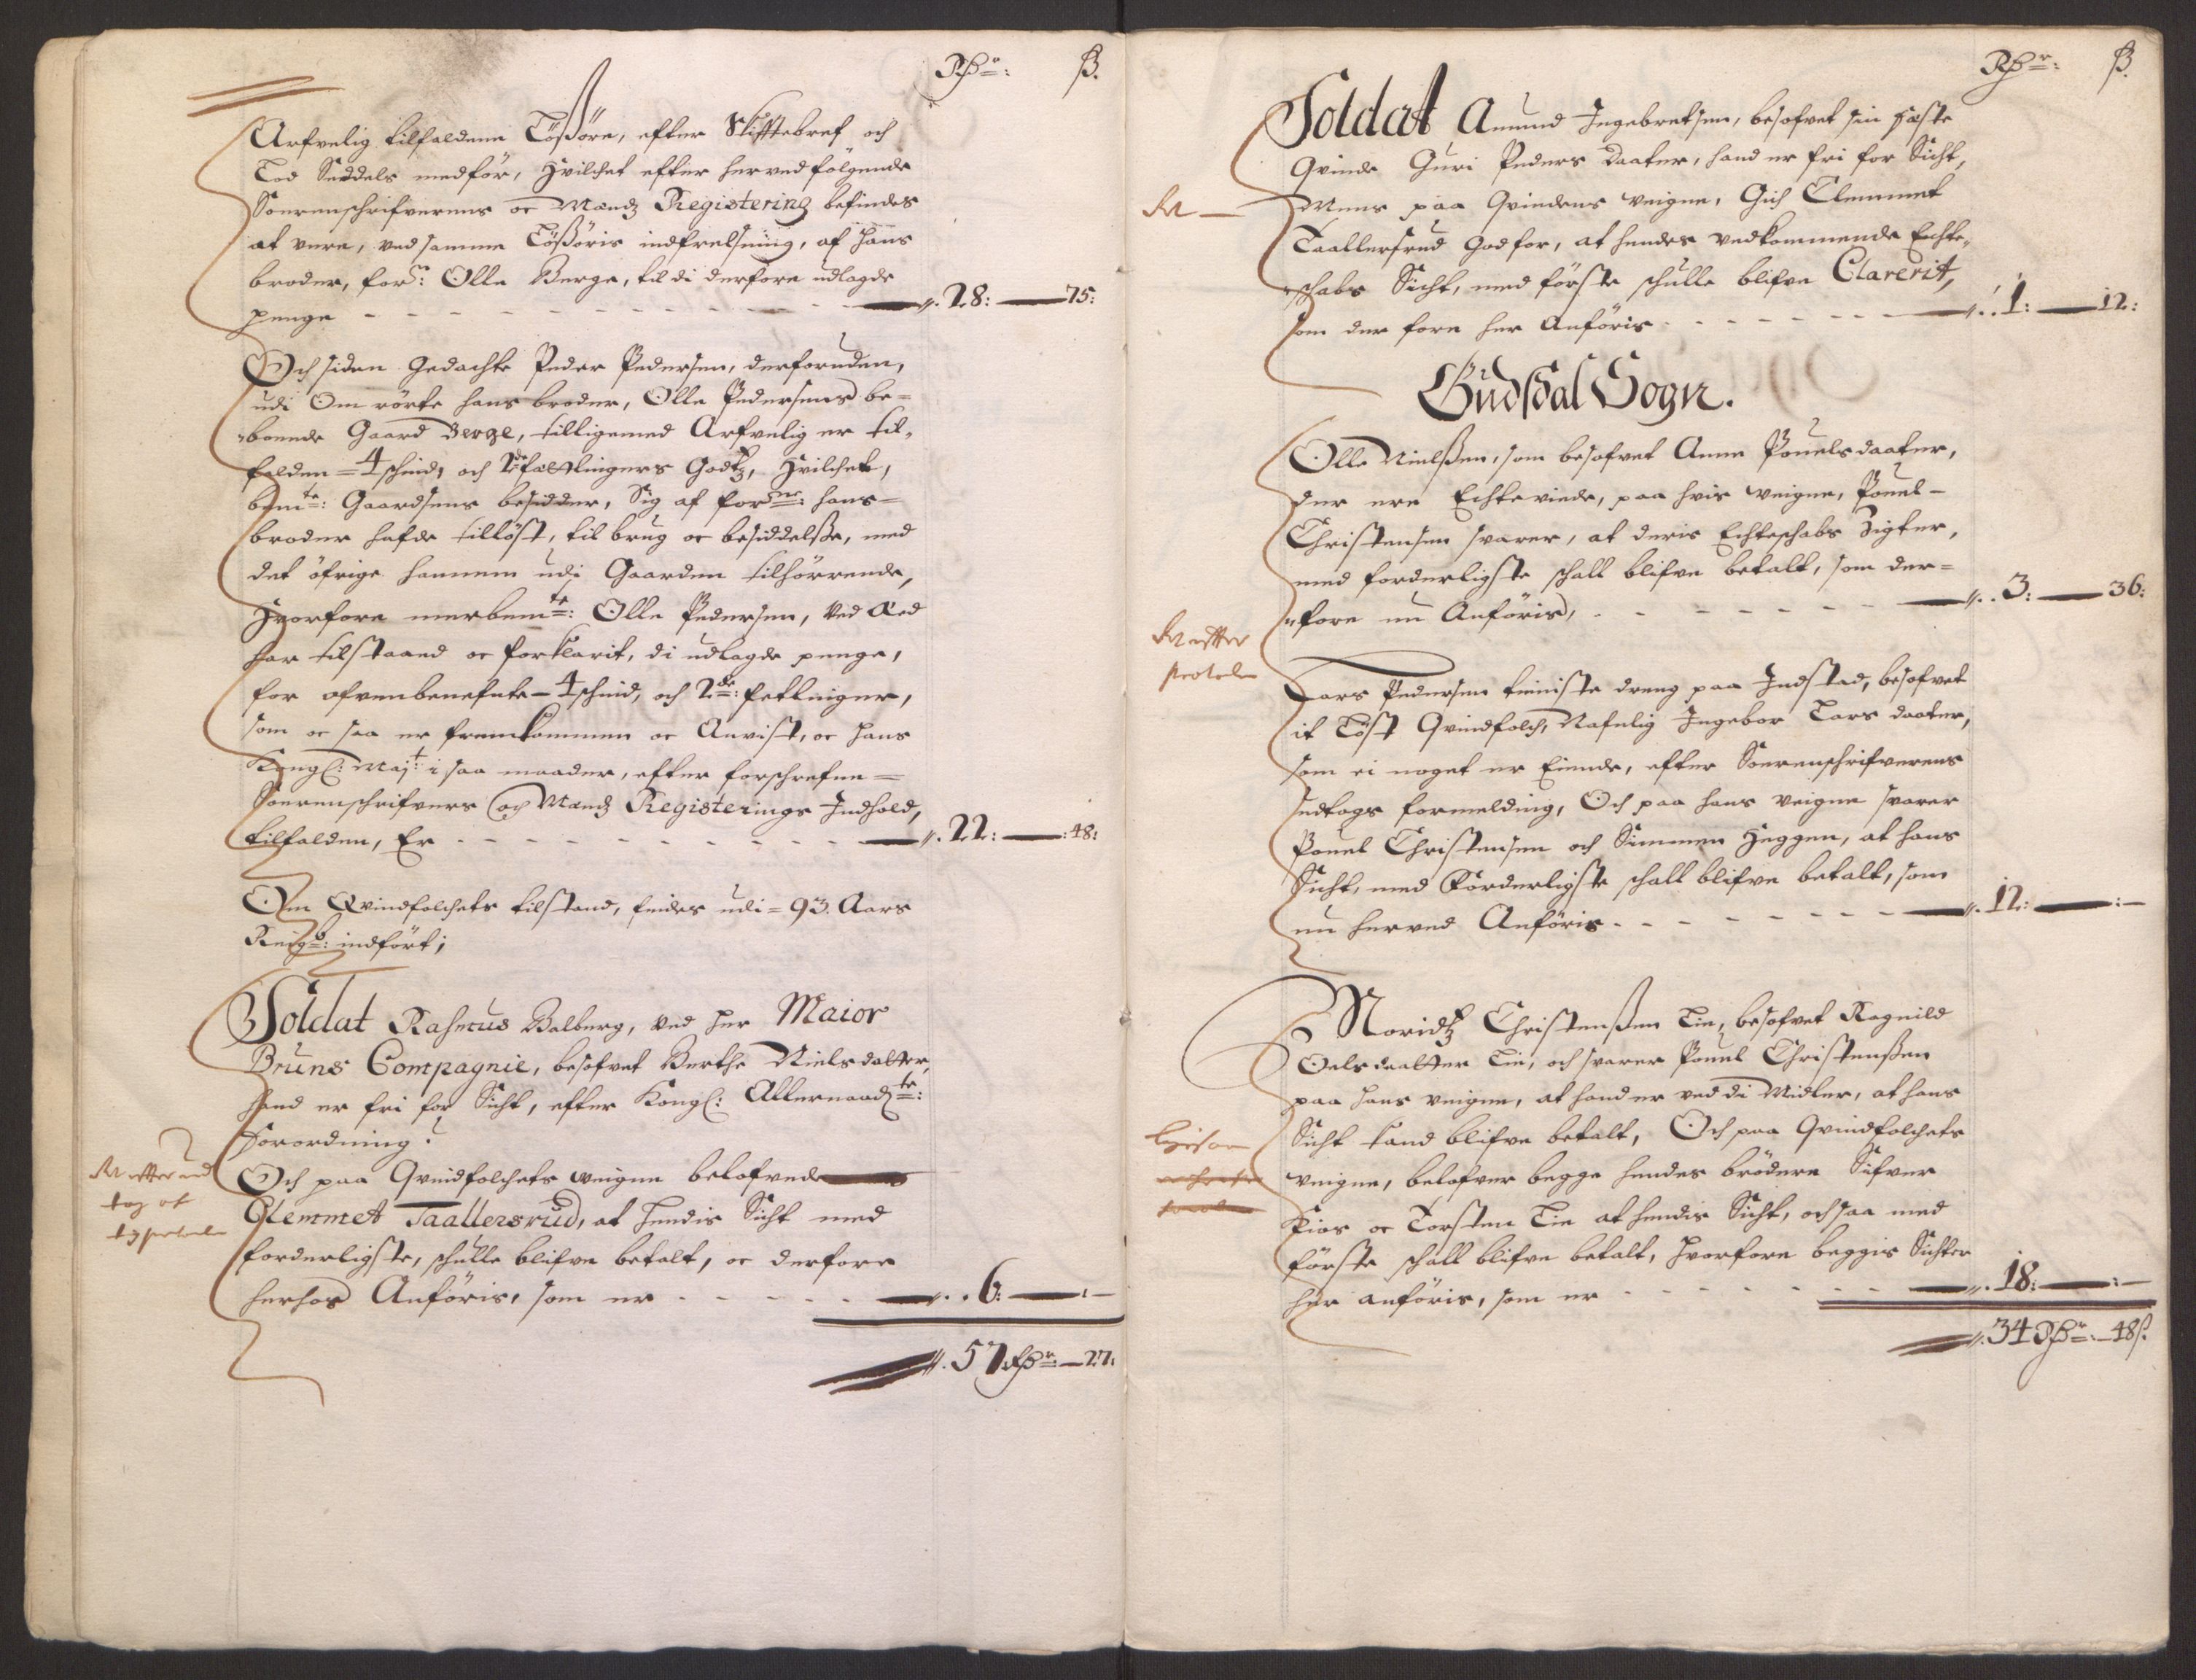 Rdr: ß.
Arfvelig tilfaldene Lösöre, efter Skifftebref och
Lod Seddels medför, Hvilchet efter herved fölgende
Sorenschrifverens oc Mænds Registering befindes
at vere, ved samme Lösöris indfrelsning, af hans
broder, forn: Olle Berge, til di derfore udlagde
penge - - - 28: 75:
Och siden gedachte Peder Pedersen, derforuden,
udi Om rörte hans broder, Olle Pedersens be-
boende Gaard Berge, tilligemed Arfvelig er til-
falden - 4 schind, och 2de fætlingers Godtz, Hvilchet,
bemte: Gaardsens besidder, Sig af forne: hans
broder hafde tillöst, til brug oc besiddelse, med
det öfrige hannem udi Gaarden tilhörrende,
Hvorfore merbemte: Olle Pedersen, ved Æed
har tilstaaed oc forklarit, di udlagde penge,
for ofvenbenefnte - 4 schind, och 2de: fetlinger,
som oc saa er fremkommen oc Anvist, oc hans
Kongl: Majt: i saa maader, efter forschrefne
Sorenschrifvers och Mænds Registerings Indhold,
tilfalden, Er - - - 22: 48:
Om Qvindfolchets tilstand, findes udi - 93. Aars
Reigb: indfört;
Soldat Rasmus Balberg, ved her Maior
Bruns Compagnie, besofvet Berthe Nielsdatter,
hand er fri for Sicht, efter Kongl: Allernaadste:
Forordning.
Och paa Qvindfolchets veigne belofvede
Clemmet Taallersrud, at hendis Sicht med
forderligste, schulle blifve betalt, oc derfore
herhos Anföris, som er - - - 6: -
57 Rdr: 27:
Rdr: ß.
Soldat Amund Ingebretsen, besofvet sin feste
Qvinde Guri Peders daater, hand er fri for Sicht,
Mens paa Qvindens veigne, Gich Clemmet
Taallersrud God for, at hendes vedkommende Echte-
schabs Sicht, med förste schulle blifve Clarerit,
som der fore her Anföris - - - 1: 12:
Gudsdal Sogn.
Olle Nielsen, som besofvet Anne Pouelsdaater,
der ere Echteviede, paa hvis veigne, Pouel
Christensen svarer, at deris Echteschabs Sigter,
med forderligste schall blifve betalt, som der-
fore nu Anföris, - - - 3: 36:
Lars Pedersen tieniste dreng paa Indstad, besofvet
it Löst Qvindfolch, Nafnlig Ingebor Lars daater,
som ei noget er Eiende, efter Sorenschrifverens
udtogs formelding, Och paa hans veigne svarer
Pouel Christensen och Simmen Heggen, at hans
Sicht, med forderligste schall blifve betalt, som
nu herved Anföris - - - 12: -
Moridtz Christensen Lie, besofvet Ragnild
Oelsdaatter Lie, och svarer Pouel Christensen
paa hans veigne, at hand er ved di Midler, at hans
Sicht kand blifve betalt, Och paa Qvindfolchets
veigne, belofver begge hendes brödere Sifver
Kios oc Torsten Lie at hendis Sicht, och saa med
förste schall blifve betalt, hvorfore beggis Sichter
her anföris, som er - - - 18: -
34 Rdr: 48ß.